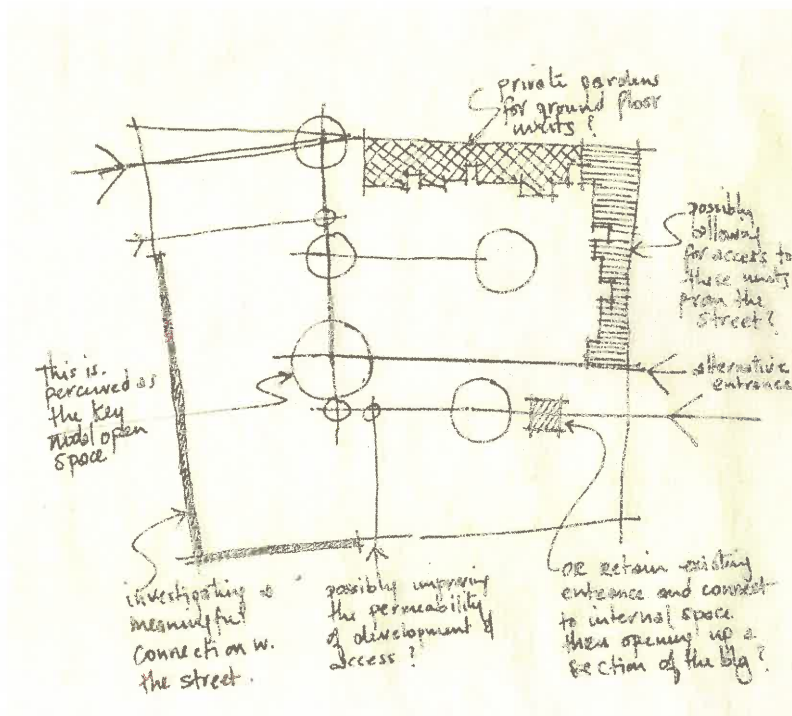 private gardens
for ground floor
units?
possibly
allowing
for access to
these units
from the
street?
alternative
entrance
This is
perceived as
the key
nodal open
space
investigating a
meaningful
connection w.
the street.
possibly improving
the permeability
of development &
access?
OR retain existing
entrance and connect
to internal space
then opening up a
section of the blg?